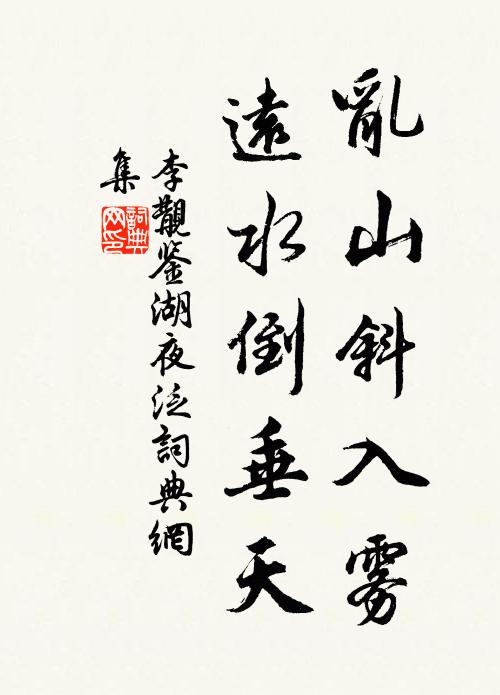 亂山斜入霧
遠水倒垂天
李觀鉴湖夜泛詞典網
集
詞典
网印